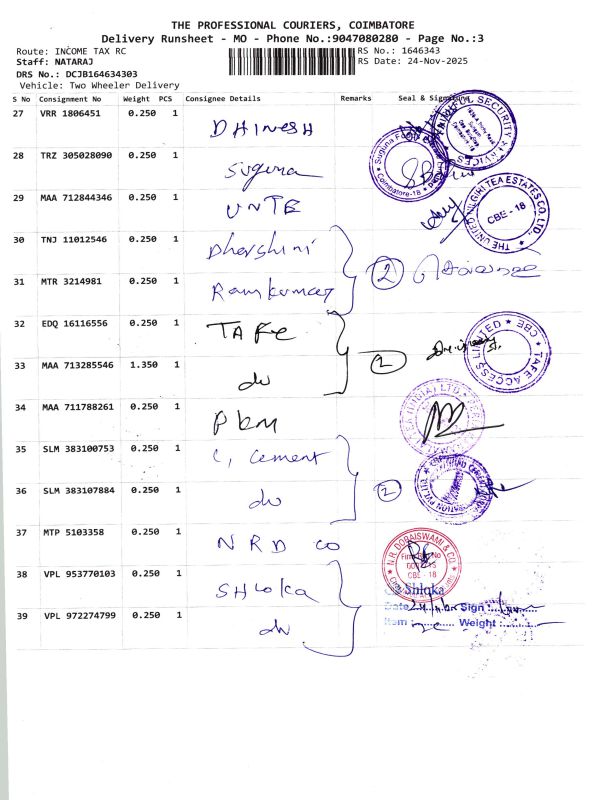 THE PROFESSIONAL COURIERS, COIMBATORE
Delivery Runsheet - MO - Phone No.:9047080280 - Page No.:3
Route: INCOME TAX RC
RS No.: 1646343
Staff: NATARAJ
RS Date: 24-Nov-2025
DRS No.: DCJB164634303
Vehicle: Two Wheeler Delivery
S No Consignment No Weight PCS Consignee Details Remarks Seal & Signature
27 VRR 1806451 0.250 1 DHINESH
28 TRZ 305028090 0.250 1 Suguna
29 MAA 712844346 0.250 1 UNTE
30 TNJ 11012546 0.250 1 Dharshini
2
31 MTR 3214981 0.250 1 Ramkumar
32 EDQ 16116556 0.250 1 TAFE
2
33 MAA 713285546 1.350 1 do
34 MAA 711788261 0.250 1 PKM
35 SLM 383100753 0.250 1 C, Cement
2
36 SLM 383107884 0.250 1 do
37 MTP 5103358 0.250 1 NRD CO
38 VPL 953770103 0.250 1 SHloka
39 VPL 972274799 0.250 1 do
SECURITY SERVICES
Suguna
Coimbatore-18
THE UNITED NILGIRI TEA ESTATES CO. LTD.,
CBE - 18
TAFE ACCESS LIMITED
CBE
N.R. DORAISWAMI & CO.
CBE - 18
Shloka
Date Sign :
Item : Weight :